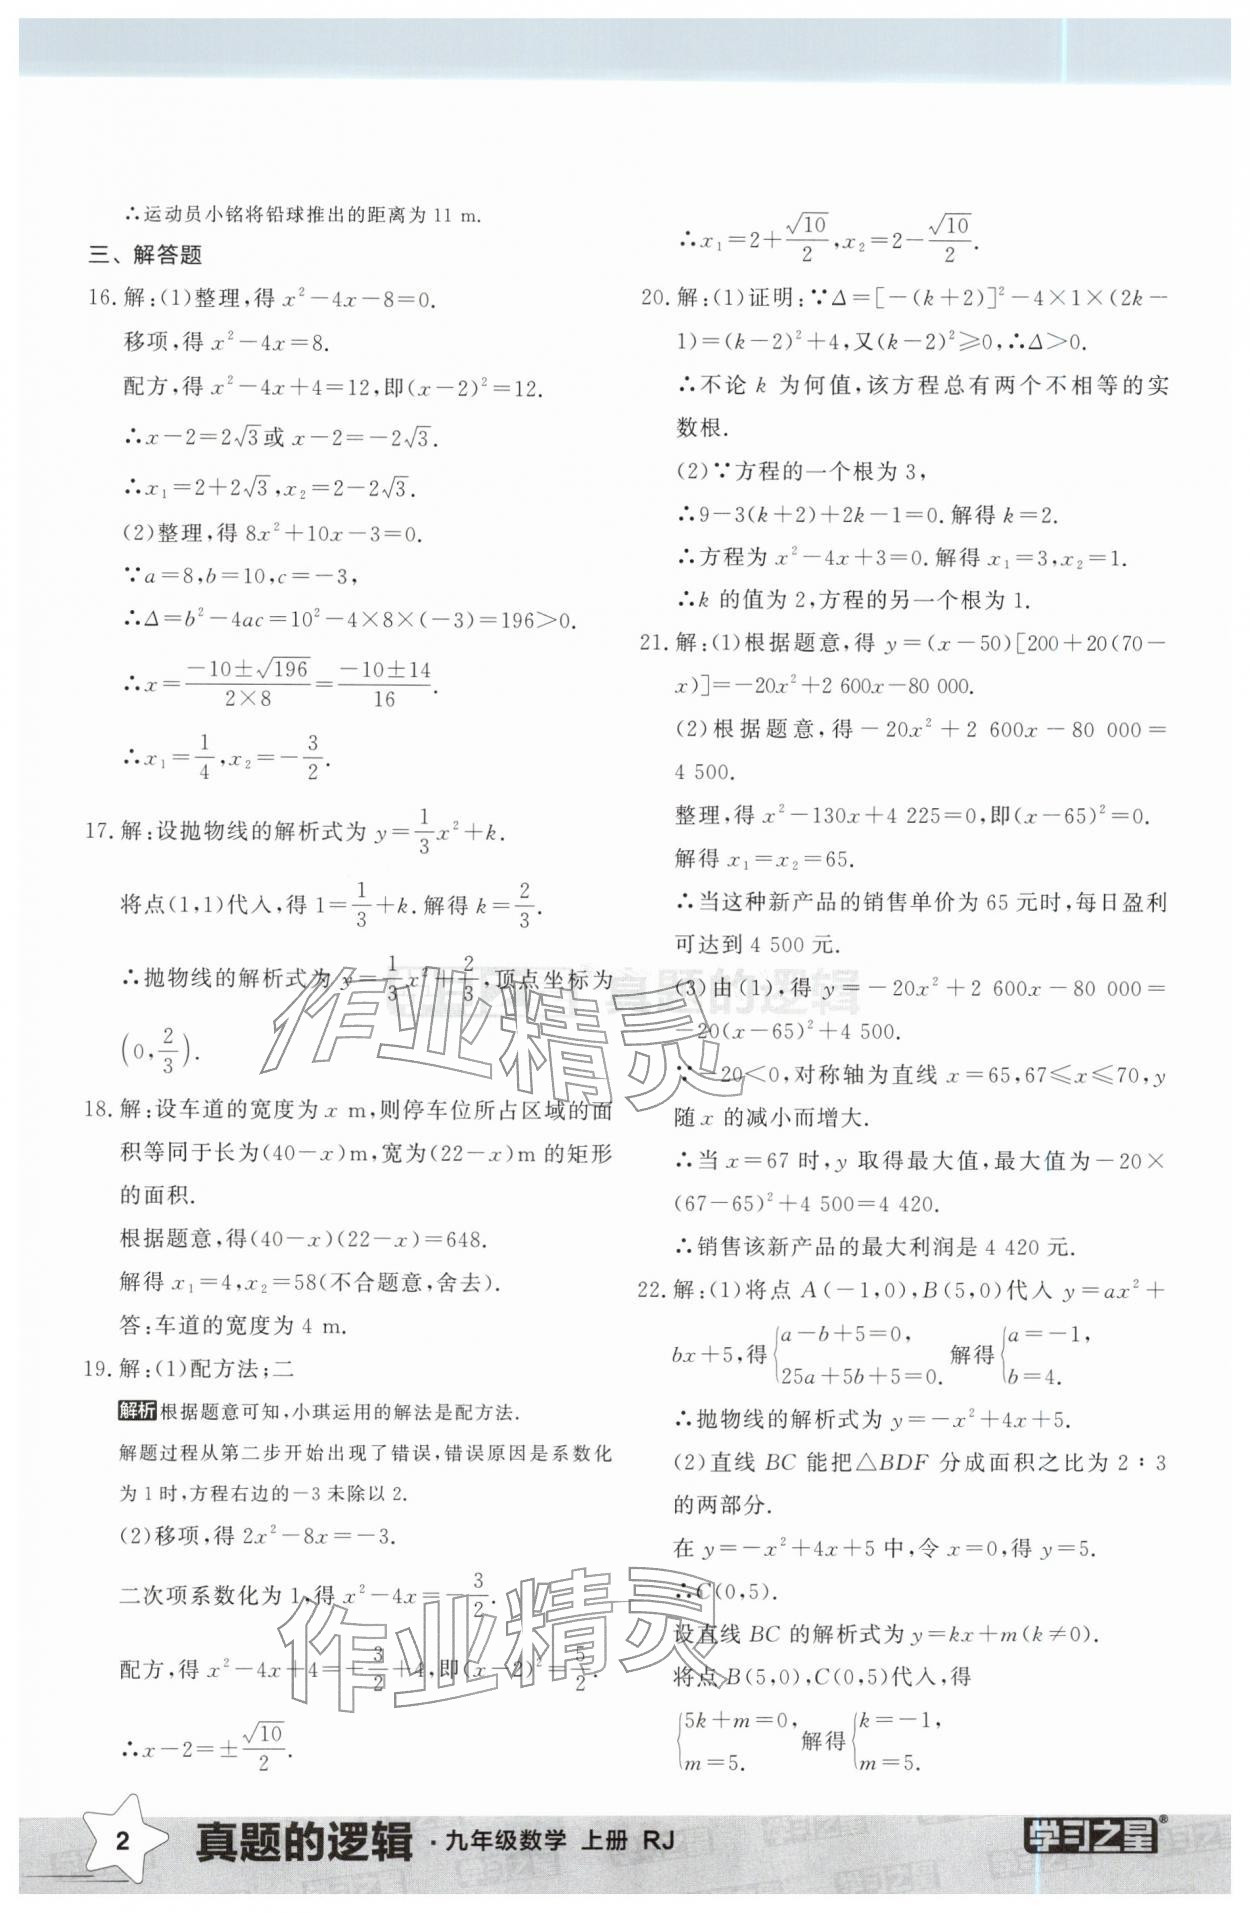 ∴运动员小铭将铅球推出的距离为 11 m.
三、解答题
16. 解:(1)整理,得 x²-4x-8=0.
移项,得 x²-4x=8.
配方,得 x²-4x+4=12,即(x-2)²=12.
∴x-2=2√3或 x-2=-2√3.
∴x₁=2+2√3,x₂=2-2√3.
(2)整理,得 8x²+10x-3=0.
∵a=8,b=10,c=-3,
∴Δ=b²-4ac=10²-4×8×(-3)=196>0.
∴x=(-10±√196)/(2×8)=(-10±14)/16.
∴x₁=1/4,x₂=-3/2.
17. 解:设抛物线的解析式为 y=1/3x²+k.
将点(1,1)代入,得 1=1/3+k.解得 k=2/3.
∴抛物线的解析式为 y=1/3x²+2/3,顶点坐标为
(0,2/3).
18. 解:设车道的宽度为 x m,则停车位所占区域的面
积等同于长为(40-x)m,宽为(22-x)m 的矩形
的面积.
根据题意,得(40-x)(22-x)=648.
解得 x₁=4,x₂=58(不合题意,舍去).
答:车道的宽度为 4 m.
19. 解:(1)配方法;二
解析 根据题意可知,小琪运用的解法是配方法.
解题过程从第二步开始出现了错误,错误原因是系数化
为 1 时,方程右边的-3 未除以 2.
(2)移项,得 2x²-8x=-3.
二次项系数化为 1,得 x²-4x=-3/2.
配方,得 x²-4x+4=-3/2+4,即(x-2)²=5/2.
∴x-2=±√10/2.
∴x₁=2+√10/2,x₂=2-√10/2.
20. 解:(1)证明:∵Δ=[-(k+2)]²-4×1×(2k-
1)=(k-2)²+4,又(k-2)²≥0,∴Δ>0.
∴不论 k 为何值,该方程总有两个不相等的实
数根.
(2)∵方程的一个根为 3,
∴9-3(k+2)+2k-1=0.解得 k=2.
∴方程为 x²-4x+3=0.解得 x₁=3,x₂=1.
∴k 的值为 2,方程的另一个根为 1.
21. 解:(1)根据题意,得 y=(x-50)[200+20(70-
x)]=-20x²+2 600x-80 000.
(2)根据题意,得-20x²+2 600x-80 000=
4 500.
整理,得 x²-130x+4 225=0,即(x-65)²=0.
解得 x₁=x₂=65.
∴当这种新产品的销售单价为 65 元时,每日盈利
可达到 4 500 元.
(3)由(1),得 y=-20x²+2 600x-80 000=
-20(x-65)²+4 500.
∵-20<0,对称轴为直线 x=65,67≤x≤70,y
随 x 的减小而增大.
∴当 x=67 时,y 取得最大值,最大值为-20×
(67-65)²+4 500=4 420.
∴销售该新产品的最大利润是 4 420 元.
22. 解:(1)将点 A(-1,0),B(5,0)代入 y=ax²+
bx+5,得{a-b+5=0, 25a+5b+5=0. 解得{a=-1, b=4.
∴抛物线的解析式为 y=-x²+4x+5.
(2)直线 BC 能把△BDF 分成面积之比为 2∶3
的两部分.
在 y=-x²+4x+5 中,令 x=0,得 y=5.
∴C(0,5).
设直线 BC 的解析式为 y=kx+m(k≠0).
将点 B(5,0),C(0,5)代入,得
{5k+m=0, m=5. 解得{k=-1, m=5.
作业精灵
真题的逻辑
作业精灵
2 真题的逻辑·九年级数学 上册 RJ
学习之星®